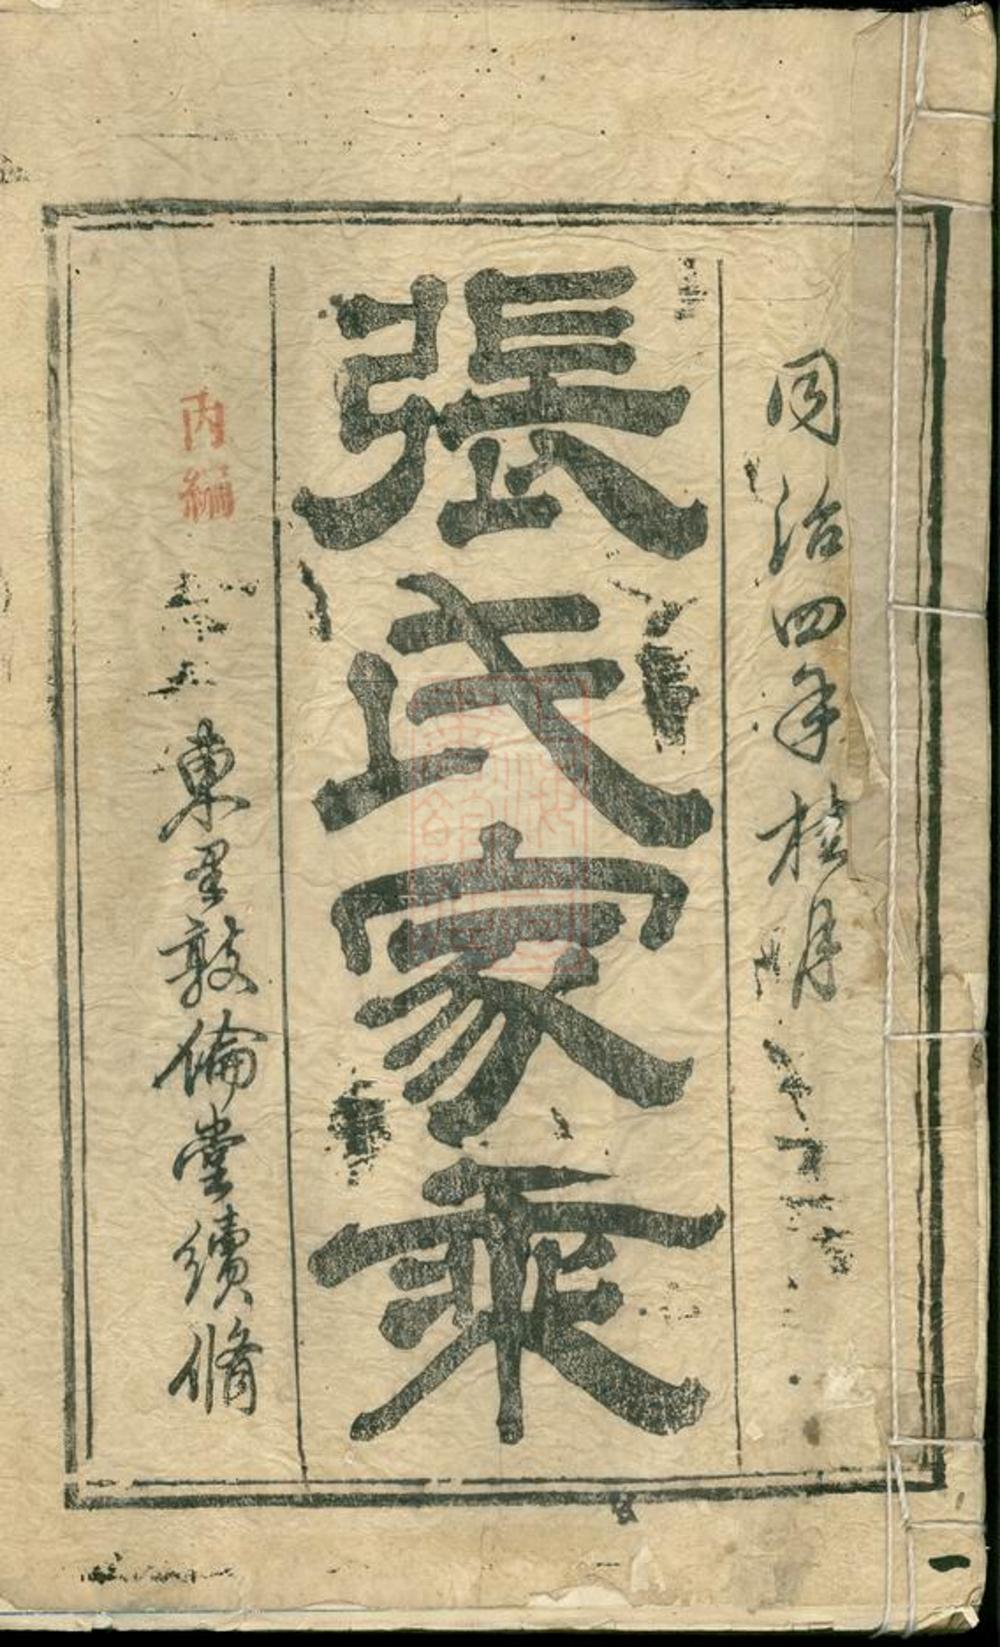 同治四年桂月
張氏家乘
丙編
東里敦倫堂續脩
一